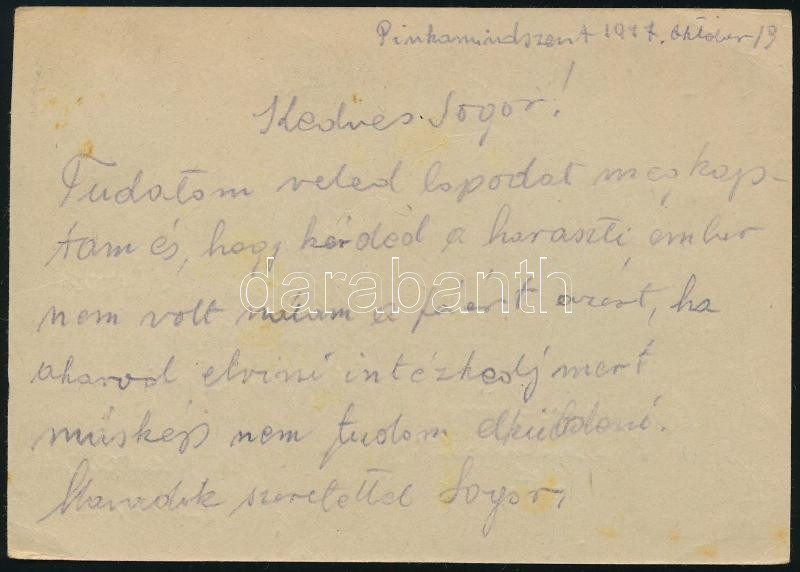 Pinkamindszent 1947. október 19
Kedves Sogor!
Tudatom veled lapodat megkap-
tam és, hogy kérded a haraszti ember
nem volt nálam a fáért azért, ha
akarod elvini intézkedj mert
másképp nem tudom elküldeni.
Maradok szeretettel Sogor,
darabanth